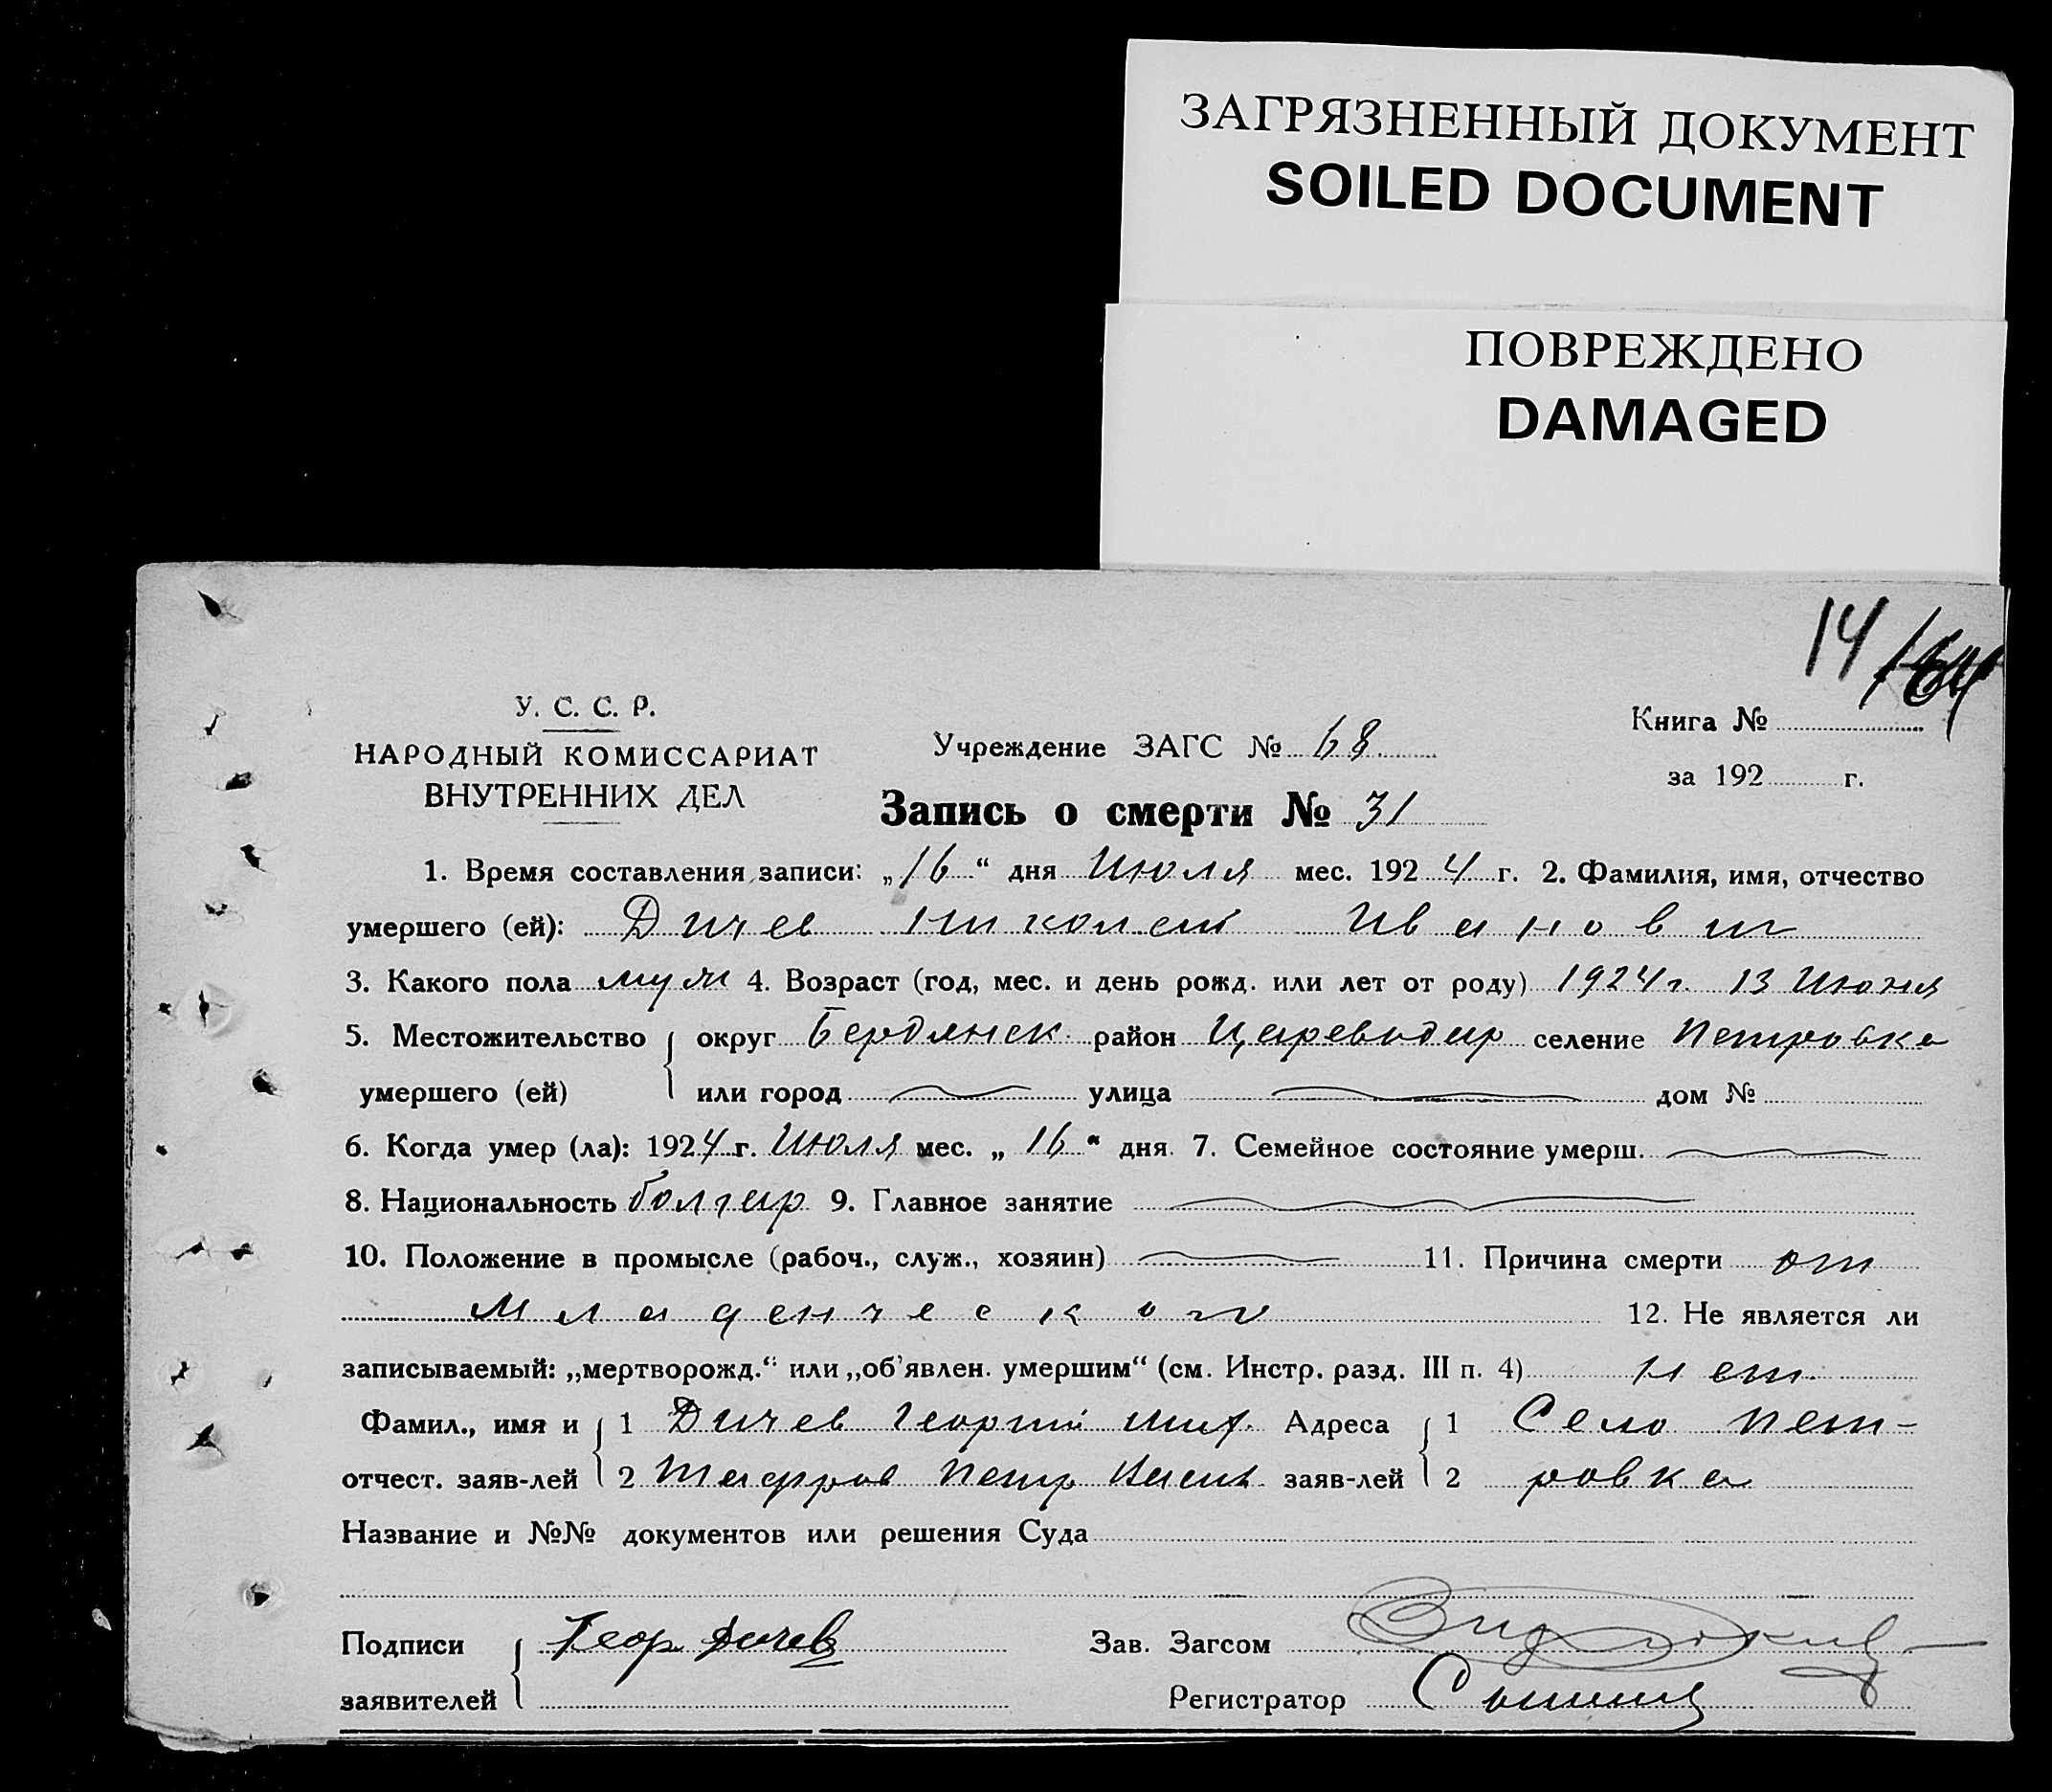 ЗАГРЯЗНЕННЫЙ ДОКУМЕНТ
SOILED DOCUMENT
ПОВРЕЖДЕНО
DAMAGED
14
У. С. С. Р.
НАРОДНЫЙ КОМИССАРИАТ
ВНУТРЕННИХ ДЕЛ
Учреждение ЗАГС № 68
Книга №
за 192 г.
Запись о смерти № 31
1. Время составления записи: „16“ дня Июля мес. 1924 г. 2. Фамилия, имя, отчество
умершего (ей): Дичев Николай Иванович
3. Какого пола муж 4. Возраст (год, мес. и день рожд. или лет от роду) 1924 г. 13 Июня
5. Местожительство округ Бердянск район Цареводар селение Петровка
умершего (ей) или город улица дом №
6. Когда умер (ла): 1924 г. Июля мес. „16“ дня. 7. Семейное состояние умерш.
8. Национальность болгар 9. Главное занятие
10. Положение в промысле (рабоч., служ., хозяин) 11. Причина смерти от
младенческого 12. Не является ли
записываемый: „мертворожд.“ или „об'явлен. умершим“ (см. Инстр. разд. III п. 4) нет.
Фамил., имя и 1 Дичев Георгий Адреса 1 Село Пет-
отчест. заяв-лей 2 Петр заяв-лей 2 ровка
Название и №№ документов или решения Суда
Подписи Геор Дичев Зав. Загсом
заявителей Регистратор